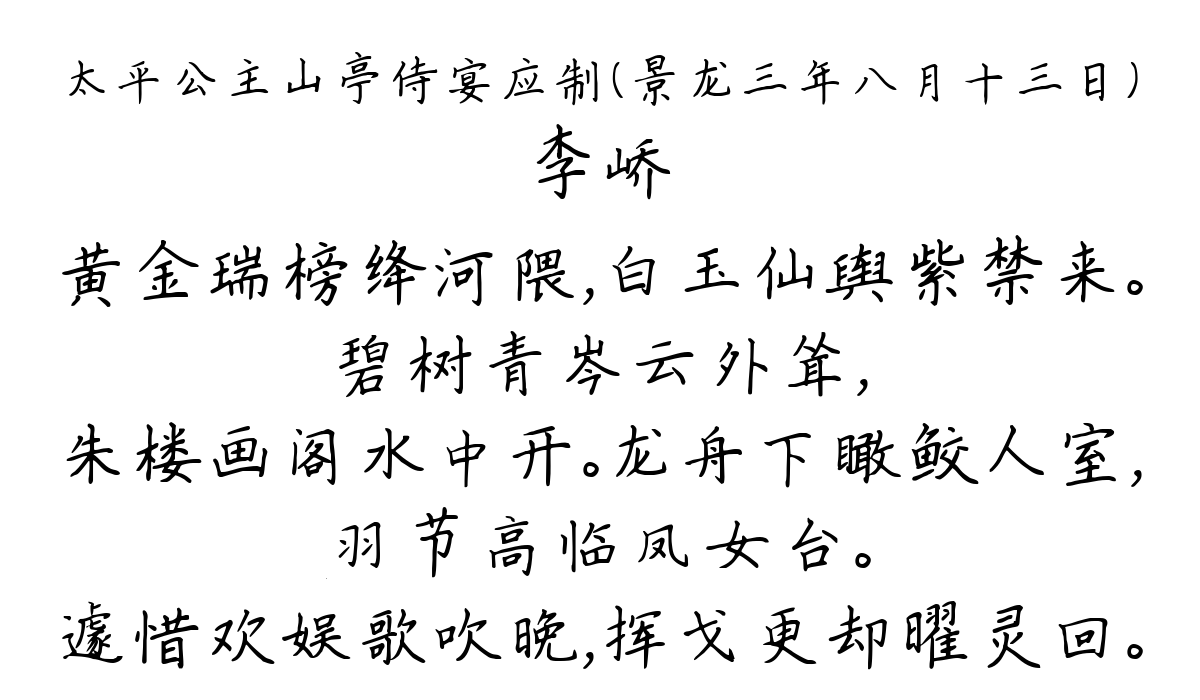 太平公主山亭侍宴应制(景龙三年八月十三日)
李峤
黄金瑞榜绛河隈,白玉仙舆紫禁来。
碧树青岑云外耸,
朱楼画阁水中开。龙舟下瞰鲛人室,
羽节高临凤女台。
遽惜欢娱歌吹晚,挥戈更却曜灵回。